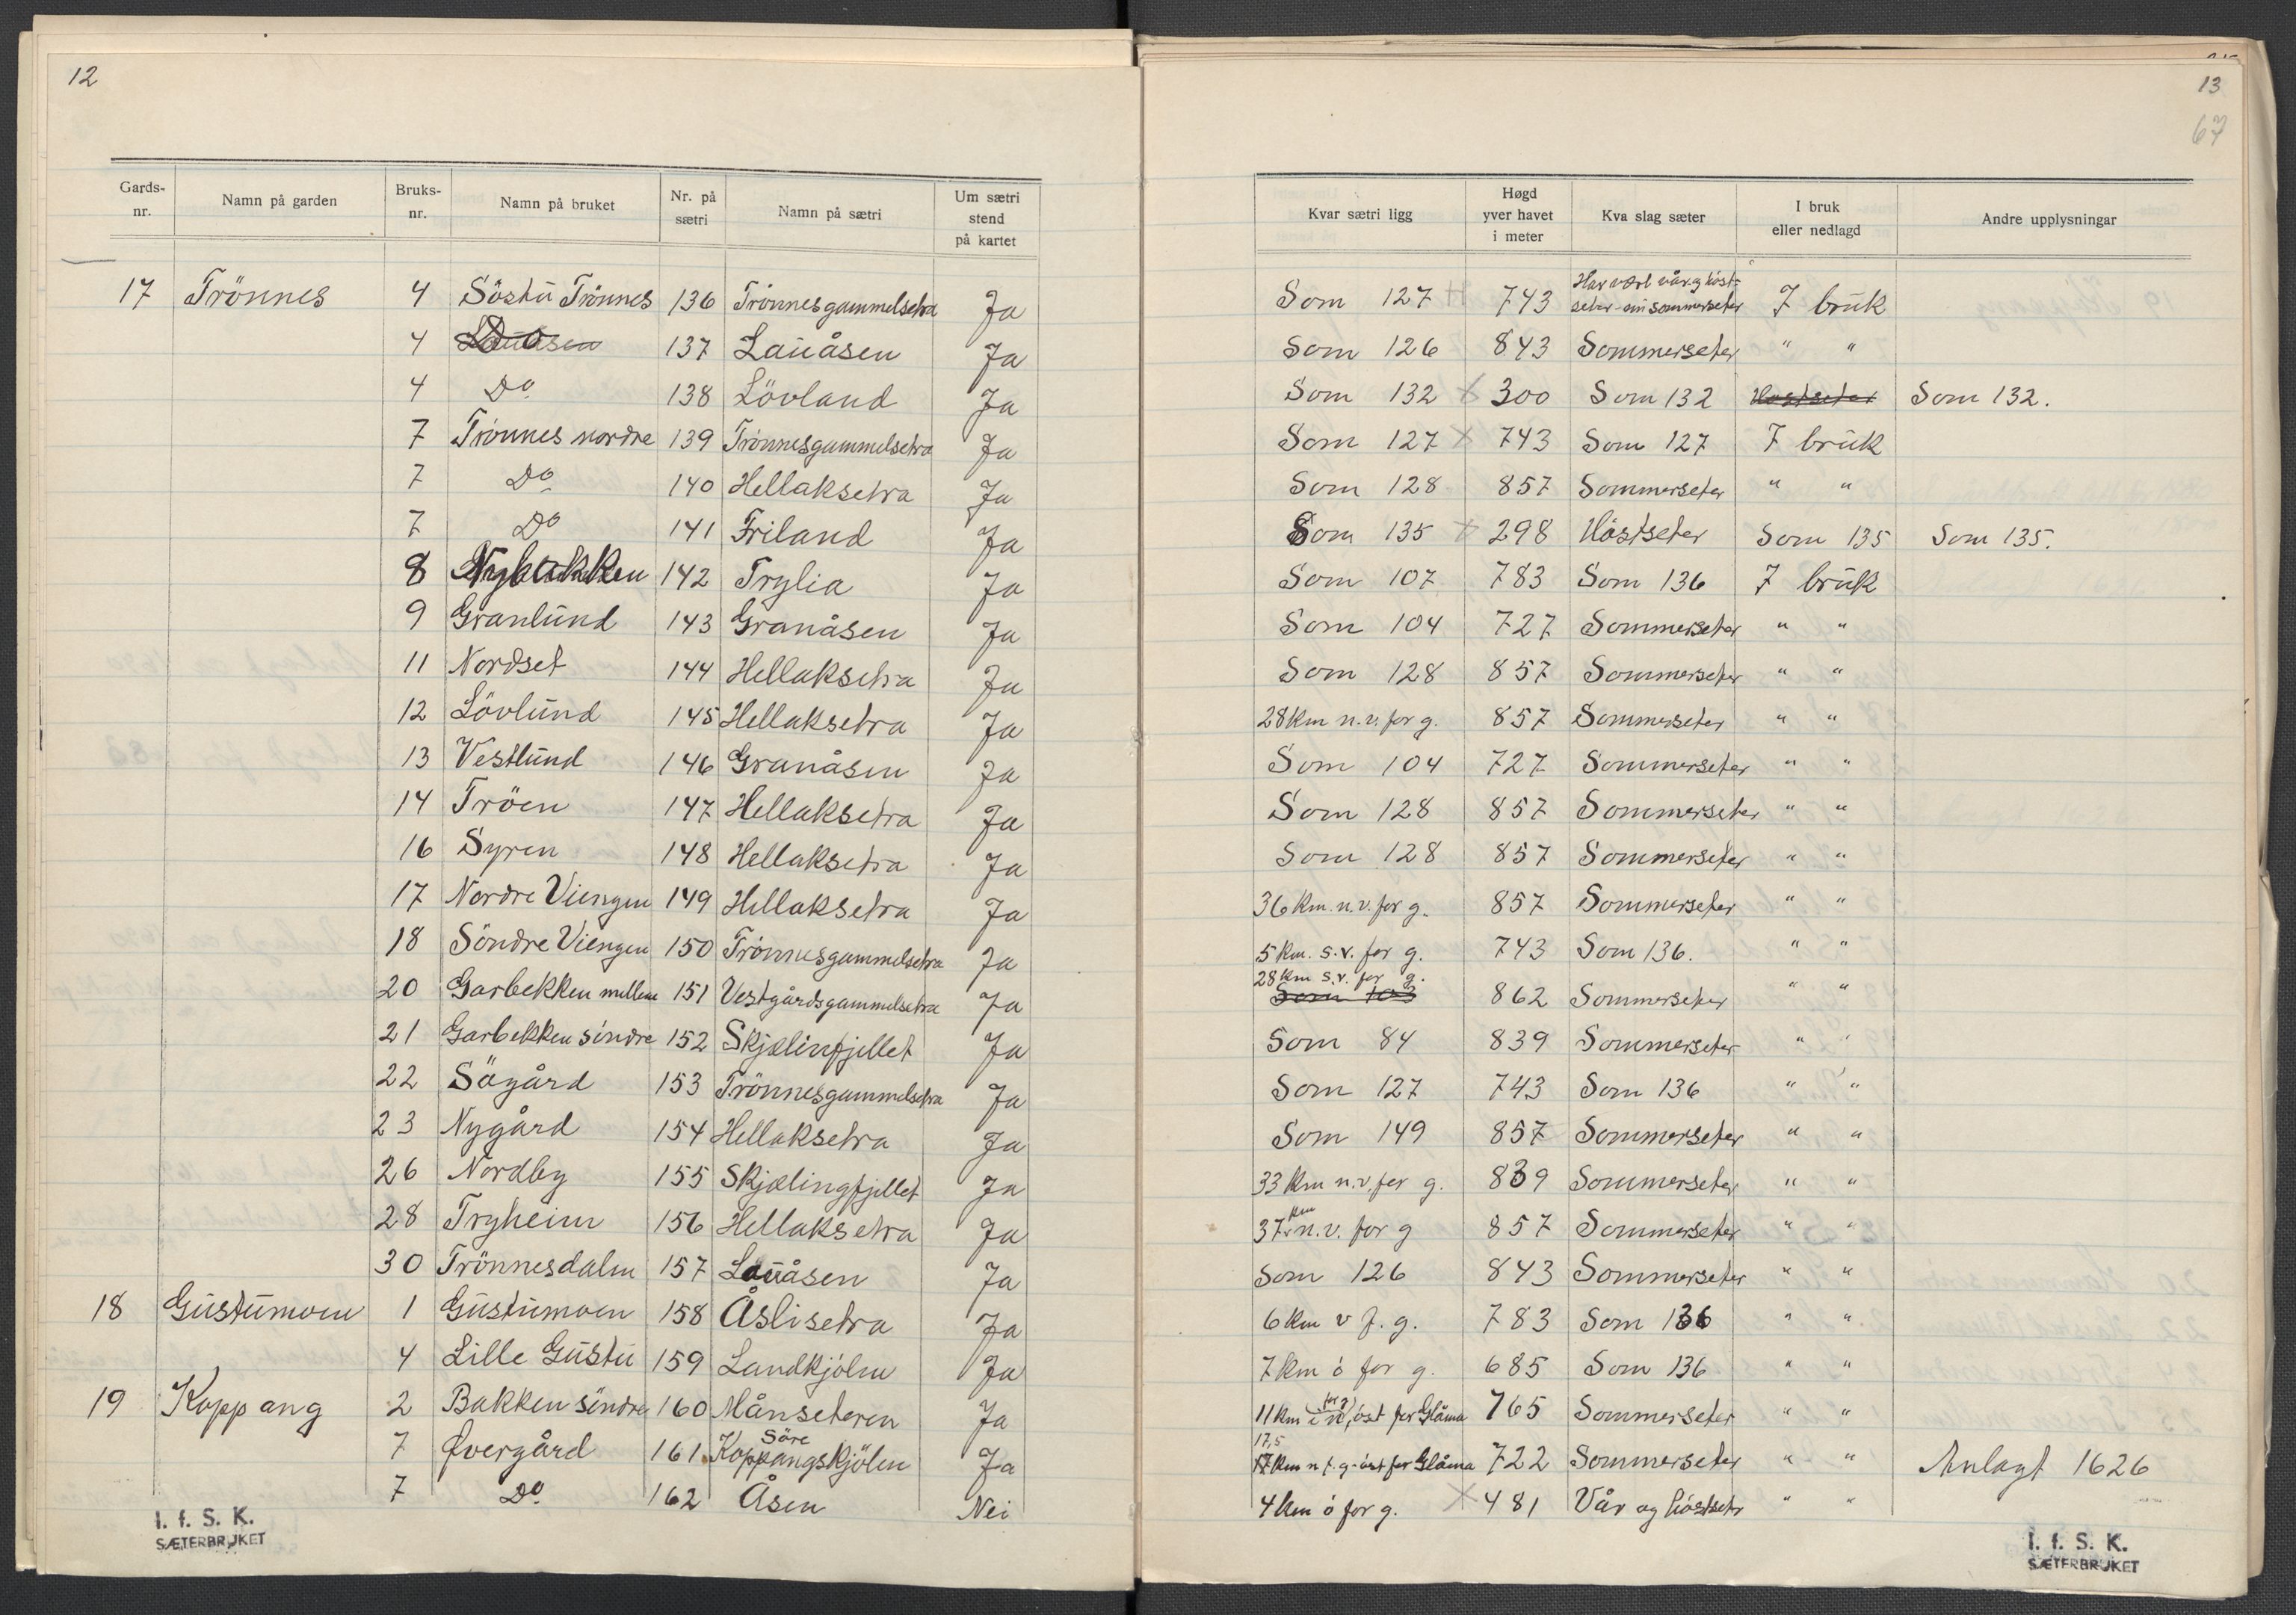 12
Gards-nr. Namn på garden Bruks-nr. Namn på bruket Nr. på sætri Namn på sætri Um sætri stend på kartet
17 Trönnes 4 Söstu Trönnes 136 Trönnesgammelsetra Ja
4 Do 137 Lauåsen Ja
4 Do 138 Lövland Ja
7 Trönnes nordre 139 Trönnesgammelsetra Ja
7 Do 140 Hellaksetra Ja
7 Do 141 Friland Ja
8 Nybakken 142 Trylia Ja
9 Granlund 143 Granåsen Ja
11 Nordset 144 Hellaksetra Ja
12 Lövlund 145 Hellaksetra Ja
13 Vestlund 146 Granåsen Ja
14 Tröen 147 Hellaksetra Ja
16 Syren 148 Hellaksetra Ja
17 Nordre Viengen 149 Hellaksetra Ja
18 Söndre Viengen 150 Trönnesgammelsetra Ja
20 Garbekken mellem 151 Vestgårdsgammelsetra Ja
21 Garbekken söndre 152 Skjælinfjellet Ja
22 Sögård 153 Trönnesgammelsetra Ja
23 Nygård 154 Hellaksetra Ja
26 Nordby 155 Skjælingfjellet Ja
28 Tryheim 156 Hellaksetra Ja
30 Trönnesdalen 157 Lauåsen Ja
18 Gustumoen 1 Gustumoen 158 Åslisetra Ja
4 Lille Gustu 159 Landkjölen Ja
19 Koppang 2 Bakken söndre 160 Månseteren Ja
7 Øvergård 161 Söre Koppangskjölen Ja
7 Do 162 Åsen Nei
I. f. S. K.
SÆTERBRUKET
13
67
Kvar sætri ligg Høgd yver havet i meter Kva slag sæter I bruk eller nedlagd Andre upplysningar
Som 127 743 Har vært vår og höst-seter - nu sommerseter I bruk
Som 126 843 Sommerseter " "
Som 132 x 300 Som 132 Höstseter Som 132.
Som 127 x 743 Som 127 I bruk
Som 128 857 Sommerseter " "
Som 135 x 298 Höstseter Som 135 Som 135.
Som 107 783 Som 136 I bruk
Som 104 727 Sommerseter " "
Som 128 857 Sommerseter " "
28 km n.v. for g. 857 Sommerseter " "
Som 104 727 Sommerseter " "
Som 128 857 Sommerseter " "
Som 128 857 Sommerseter " "
36 km. n.v. for g. 857 Sommerseter " "
5 km. s.v. for g. 743 Som 136. " "
28 km s.v. for g. Som 103 862 Sommerseter " "
Som 84 839 Sommerseter " "
Som 127 743 Som 136 " "
Som 149 857 Sommerseter " "
33 km n.v. for g. 839 Sommerseter " "
37 km n.v. for g 857 Sommerseter " "
Som 126 843 Sommerseter " "
6 km v f. g. 783 Som 136 " "
7 km ö for g. 685 Som 136 " "
11 km öst for Glåma 765 Sommerseter " "
17,5 17 km n f. g. öst for Glåma 722 Sommerseter " " Anlagt 1626
4 km ö for g. x 481 Vår og höstseter " "
I. f. S. K.
SÆTERBRUKET